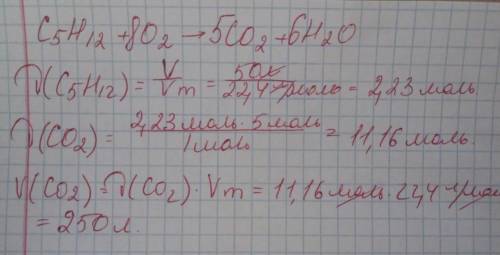 C5H12 + 8O2 → 5CO2 + 6H2O
ν(C5H12) = V/Vm = 50л/22,4 л/моль = 2,23 моль.
ν(CO2) = 2,23 моль · 5 моль/1 моль = 11,16 моль.
V(CO2) = ν(CO2) · Vm = 11,16 моль · 22,4 л/мол
= 250 л.